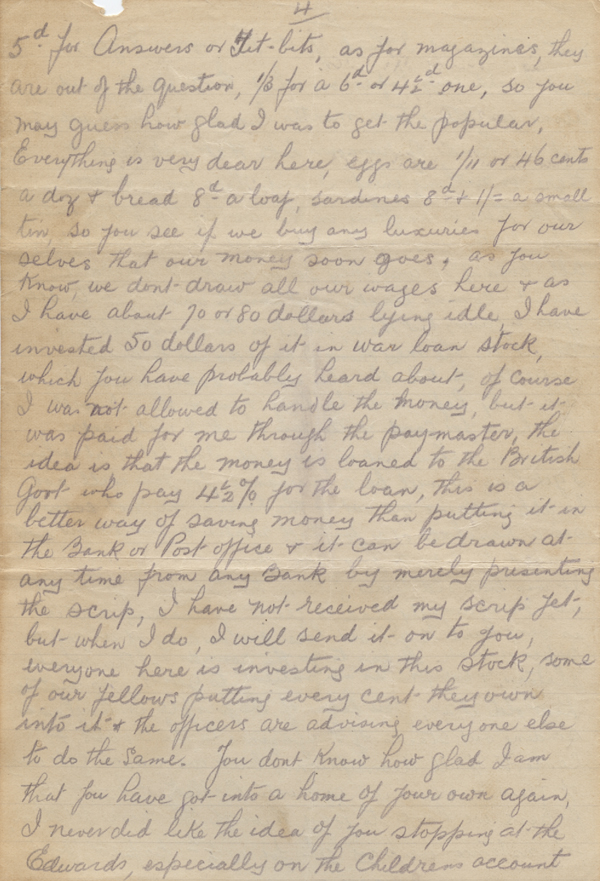 4
5d for Answers or Tit-bits, as for magazines, they
are out of the question, 1/3 for a 6d or 4½d one, so you
may guess how glad I was to get the popular,
Everything is very dear here, eggs are 1/11 or 46 cents
a doz & bread 8d a loaf, sardines 8d & 1/= a small
tin, so you see if we buy any luxuries for our
selves that our money soon goes, as you
know, we dont draw all our wages here & as
I have about 70 or 80 dollars lying idle, I have
invested 50 dollars of it in war loan stock,
which you have probably heard about, of course
I was not allowed to handle the money, but it
was paid for me through the pay-master, the
idea is that the money is loaned to the British
Govt who pay 4½% for the loan, this is a
better way of saving money than putting it in
the Bank or Post office & it can be drawn at
any time from any Bank by merely presenting
the scrip, I have not received my scrip yet,
but when I do, I will send it on to you,
everyone here is investing in this stock, some
of our fellows putting every cent they own
into it & the officers are advising everyone else
to do the same. You dont know how glad I am
that you have got into a home of your own again,
I never did like the idea of you stopping at the
Edwards, especially on the Childrens account